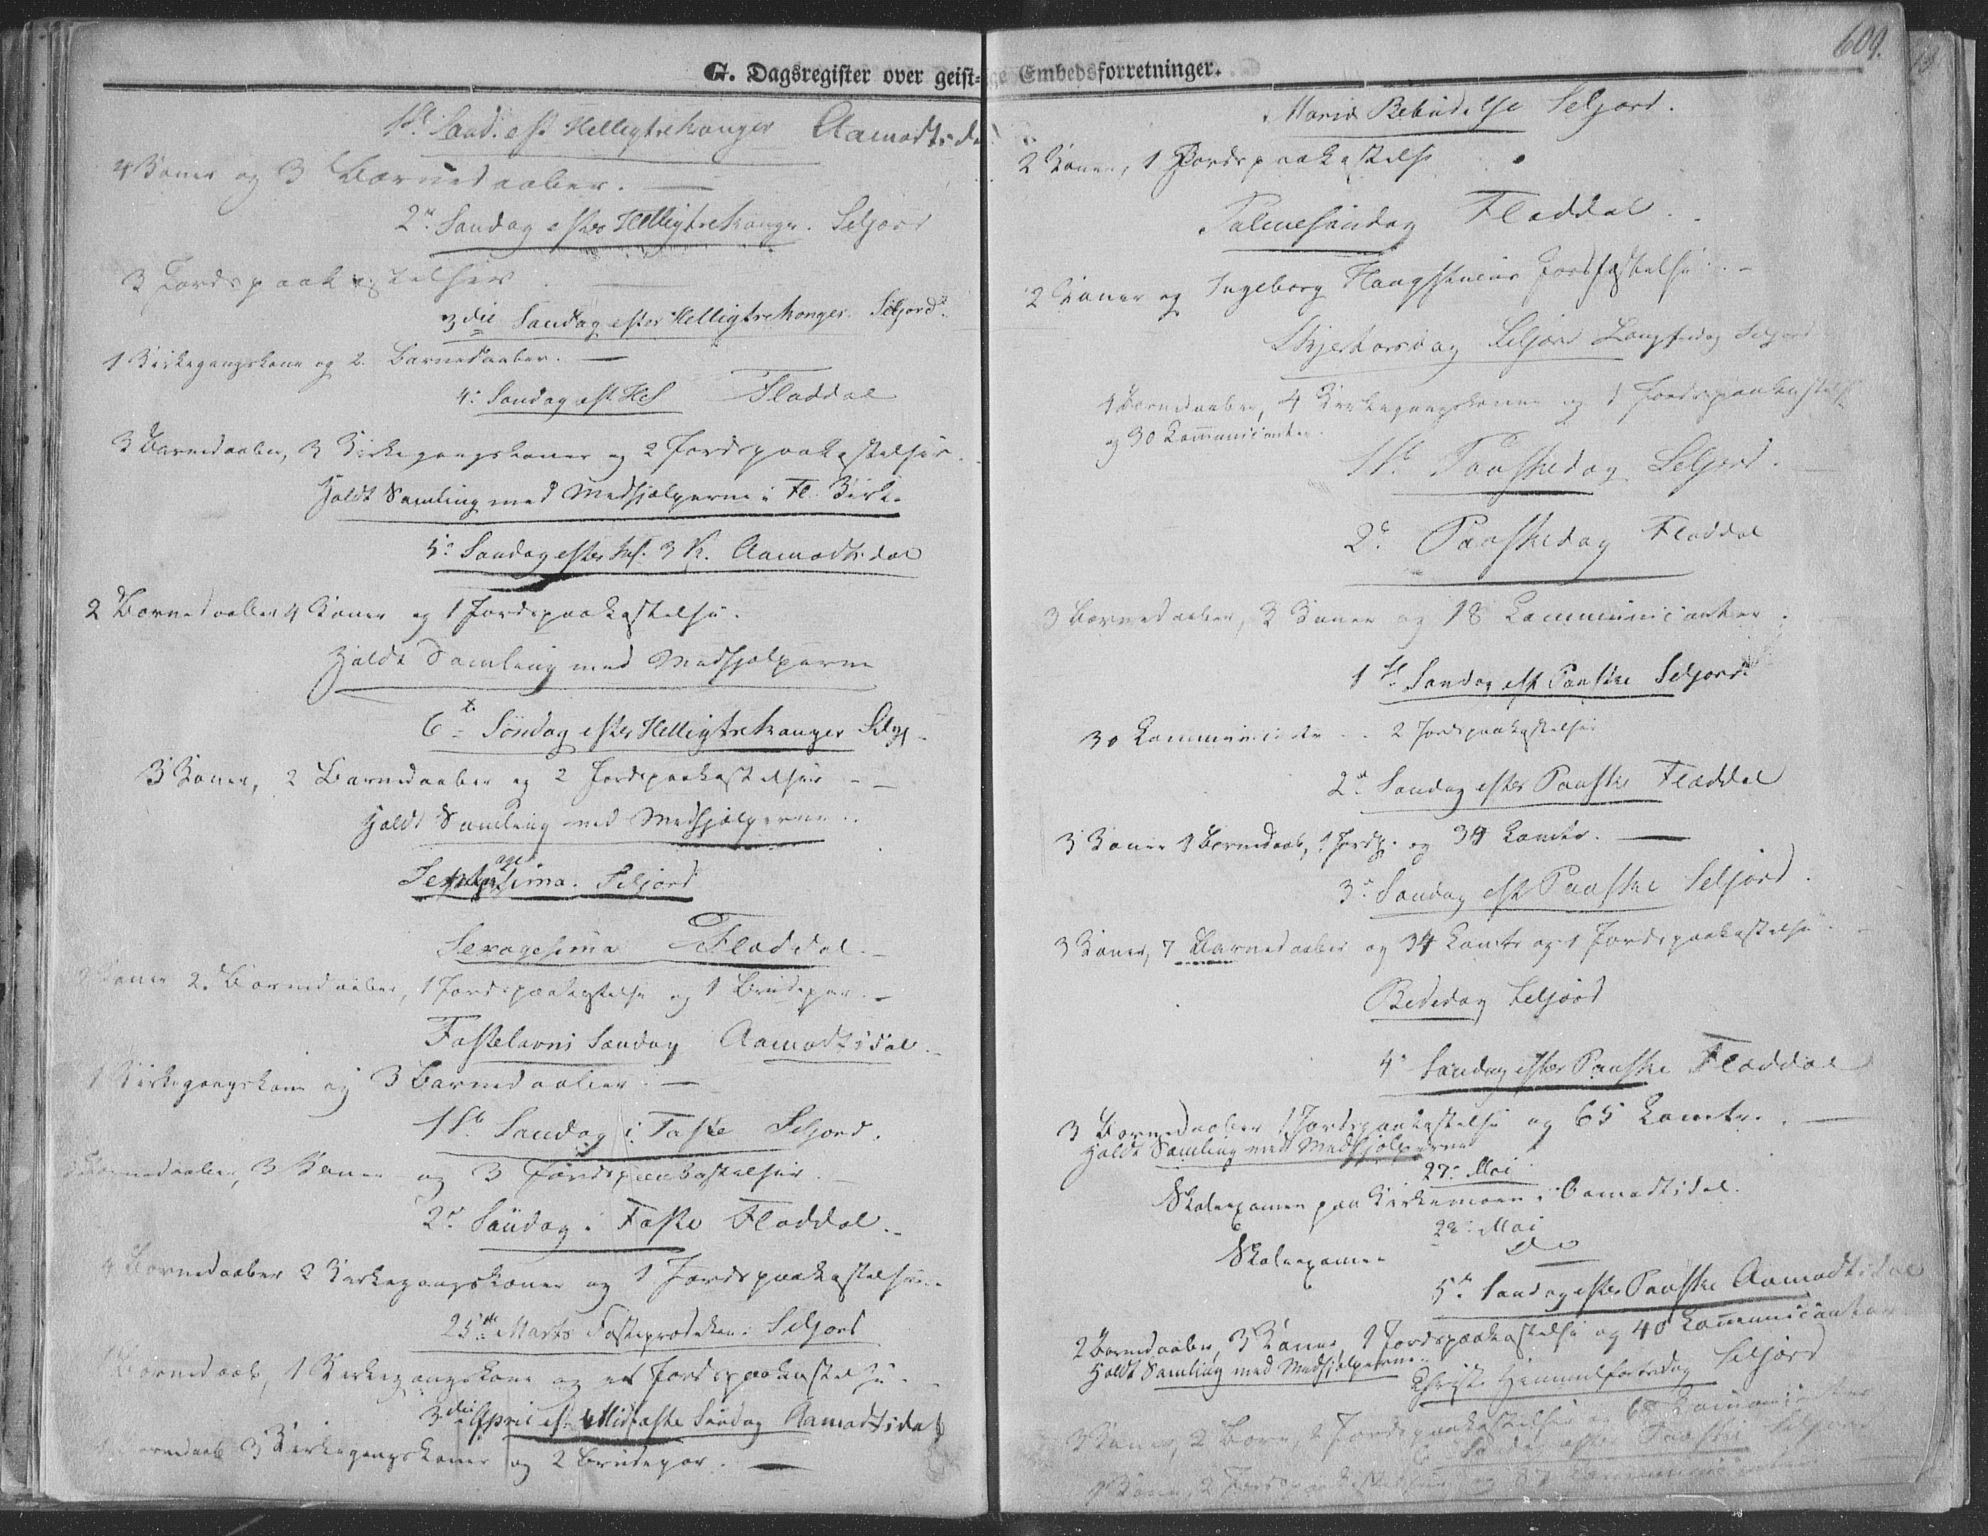 G. Dagsregister over geist=
1ste Sønd. eft Helligtrekonger Aamodtsdal
4 Koner og 3 Barnedaaber. —
2n Søndag efter Helligtrekonger. Seljord
3 Jordspaakastelser. —
3die Søndag efter Helligtrekonger Seljord.
1 Kirkegangskone og 2 Barnedaaber. —
4de Søndag eft H3K Fladdal
3 Barnedaaber, 3 Kirkegangskoner og 2 Jordspaakastelser.
Holdt Samling med Medhjælperne i Fl. Kirke
5te Søndag efter H. 3 K. Aamodtsdal
2 Barnedaaber 4 Koner og 1 Jordspaakastelse.
Holdt Samling med Medhjælperne
6te Søndag efter Helligtrekonger Selj.
3 Koner, 2 Barnedaaber og 2 Jordspaakastelser —
Holdt Samling med Medhjælperne.
Septuagesima. Seljord
Sexagesima Fladdal.
Koner 2 Barnedaaber, 1 Jordspaakastelse og 1 Brudepar. —
Fastelavns Søndag Aamodtsdal.
1 Kirkegangskone og 3 Barnedaaber. —
1ste Søndag i Faste Seljord.
Barnedaaber, 3 Koner og 3 Jordspaakastelser.
2de Søndag i Faste Fladdal.
4 Barnedaaber 2 Kirkegangskoner og 1 Jordspaakastelse
25de Marts Fasteprædiken i Seljord
1 Barnedaab, 1 Kirkegangskone og en Jordspaakastelse.
3die April eft Midfaste Søndag Aamodtsdal
Barnedaab 3 Kirkegangskoner og 2 Brudepar. —
ge Embedsforretninger.
609.
Mariæ Bebudelse Seljord.
2 Koner, 1 Jordspaakastelse
Palmesøndag Fladdal.
2 Koner og Ingeborg Haugsteins Jordfæstelse. —
Skjertorsdag Seljord Langfredag Seljord
1 Barnedaaber, 4 Kirkegangskoner og 1 Jordspaakastelse
og 30 Communicanter.
1ste Paaskedag Seljord. —
2d Paaskedag Fladdal
3 Barnedaaber, 3 Koner og 18 Communicanter.
1ste Søndag eft Paaske Seljord
30 Communicanter - 2 Jordspaakastelser
2d Søndag efter Paaske Fladdal
3 Koner 1 Barnedaab, 1 Jordp. og 34 Comtr. —
3d Søndag eft Paaske Seljord.
3 Koner, 7 Barnedaaber og 34 Comtr og 1 Jordspaakastelse
Bededag Seljord
4de Søndag efter Paaske Fladdal
3 Barnedaaber 1 Jordspaakastelse og 65 Comtr. —
Holdt Samling med Medhjælperne
27de Mai
Skoleexamen paa Kirkemoen i Aamodtsdal.
28de Mai
Skoleexamen do
5te Søndag efter Paaske Aamodtsdal
2 Barnedaaber, 3 Koner, 1 Jordspaakastelse og 40 Communicanter
Holdt Samling med Medhjælperne.
Christi Himmelfartsdag Seljord
3 Koner, 2 Børn, 2 Jordspaakastelser og 68 Communicanter
6 Søndag efter Paaske Seljord
Koner, 2 Jordspaakastelser og Communicanter